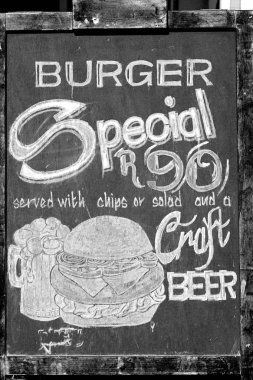 BURGER
Special
R90
served with chips or salad and a
Craft
BEER